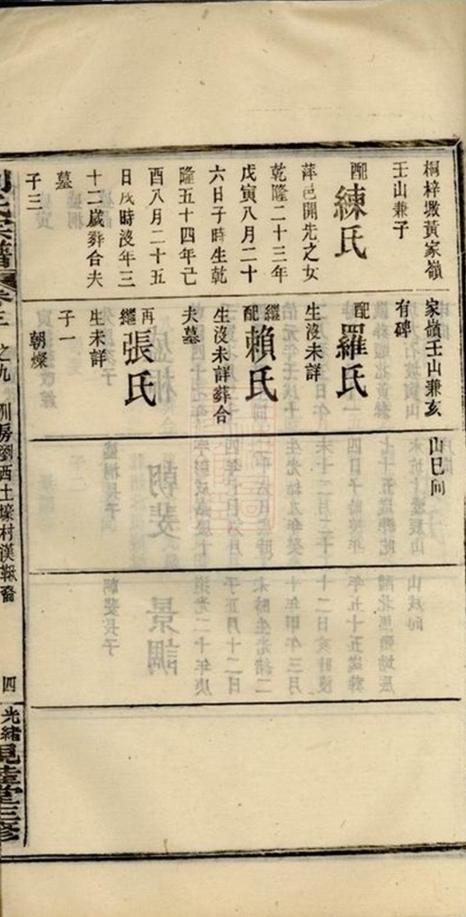 桐梓墩黃家嶺
壬山兼子
配練氏
萍邑開先之女
乾隆二十三年
戊寅八月二十
六日子時生乾
隆五十四年己
酉八月二十五
日戌時沒年三
十二歲葬合夫
墓
子三
家嶺壬山兼亥
有碑
配羅氏
生沒未詳
繼配賴氏
生沒未詳葬合
夫墓
再繼張氏
生未詳
子一
朝燦
山巳向
卷三之九
訓房瀏西土壕村漢報裔
四
光緒
堂三修